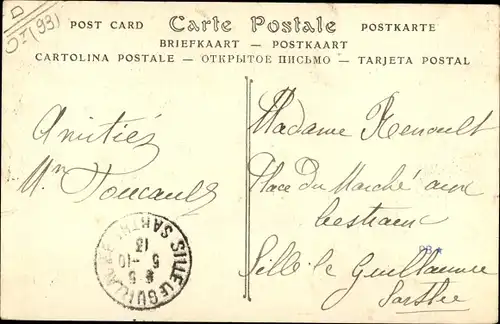 D
OI (93)
POST CARD Carte Postale POSTKARTE
BRIEFKAART — POSTKAART
CARTOLINA POSTALE — ОТКРЫТОЕ ПИСЬМО — TARJETA POSTAL
Amitiés
Mn Foucault
Madame Renoult
Place du Marché aux
bestiaux
Sillé le Guillaume
Sarthe
SILLÉ-LE-GUILLAUME
SARTHE
5 -10
13